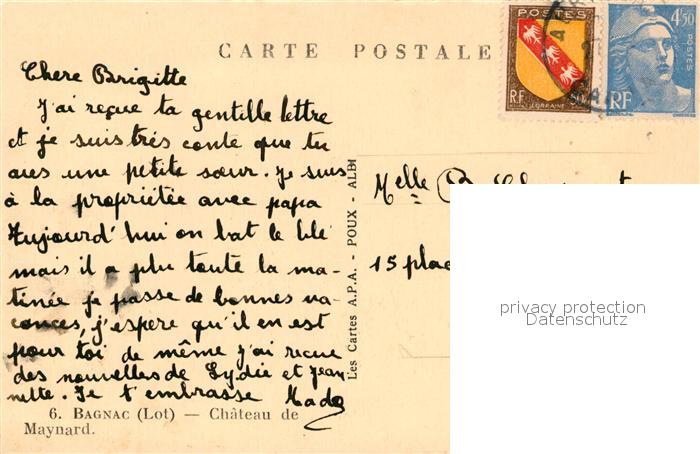 CARTE POSTALE
POSTES
RF
LORRAINE
4f50
POSTES
RF
Chere Brigitte
J'ai reçue ta gentille lettre
et je suis très conte que tu
aies une petite sœur. Je suis
à la propriétée avec papa
Aujourd'hui on bat le blé
mais il a plu toute la ma-
tinée je passe de bonnes va-
cances, j'espere qu'il en est
pour toi de même j'ai recue
des nouvelles de Lydie et Jean
nette. Je t'embrasse Mado
6. BAGNAC (Lot) — Château de
Maynard.
Les Cartes A.P.A. - POUX - ALBI
Melle B.
15 plac
privacy protection
Datenschutz